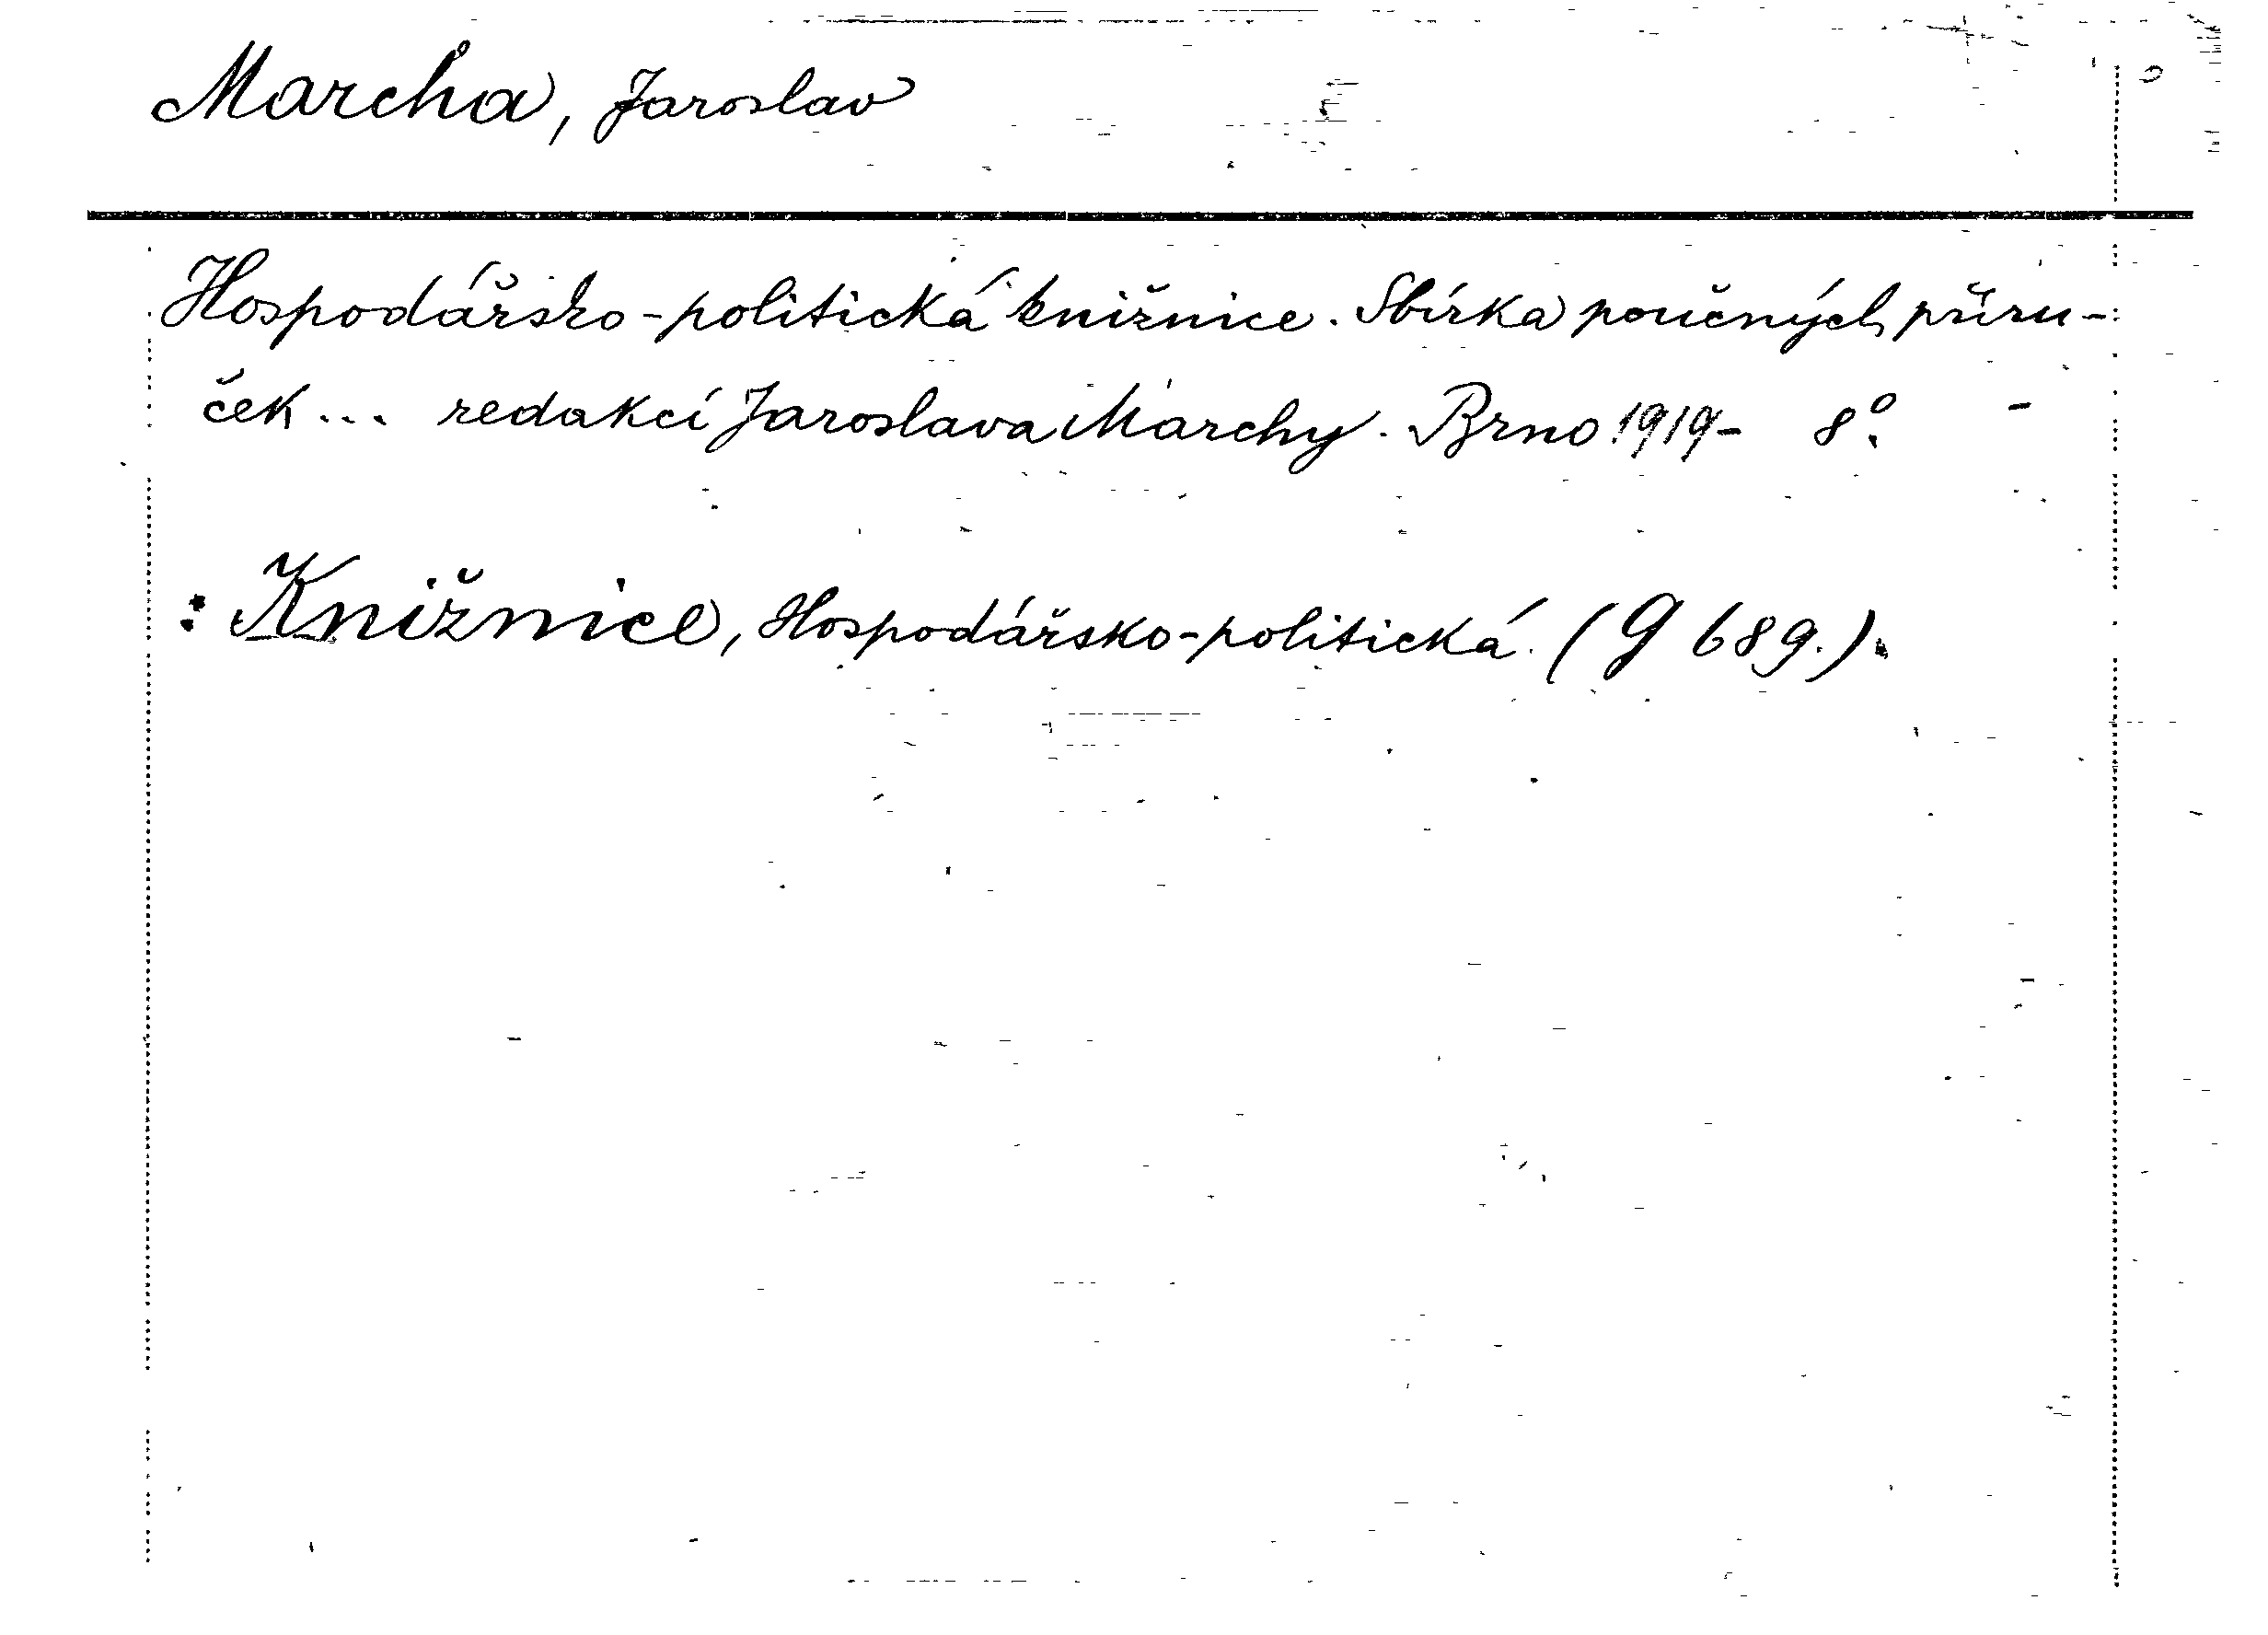 Marcha, Jaroslav
Hospodářsko-politická knižnice. Sbírka poučných příru-
ček... redakcí Jaroslava Marchy. Brno 1919- 8°.
: Knižnice, Hospodářsko-politická. (G 689.).